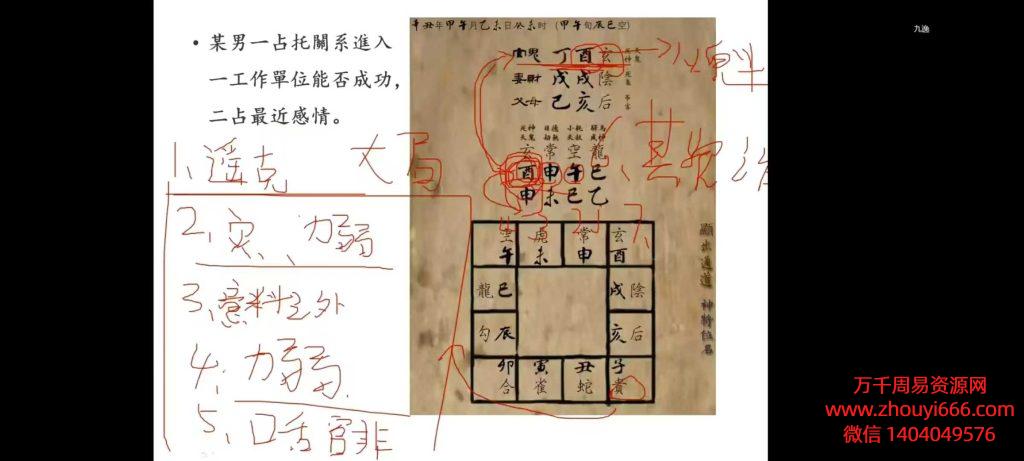 九逸
• 某男一占托關系進入
一工作單位能否成功，
二占最近感情。
辛丑年甲午月乙未日癸未时 （甲午旬辰巳空）
官鬼 丁酉玄
妻財 戌戌陰
父母 己亥后
玄 常 空 龍
酉 申 午 巳
申 未 巳 乙
空 虎 常 玄
午 未 申 酉
龍 巳 戌 陰
勾 辰 亥 后
卯 寅 丑 子
合 雀 蛇 貴
大局
1、遥克
2、灾、力弱
3、意料之外
4、力弱
5、口舌官非
万千周易资源网
www.zhouyi666.com
微信 1404049576